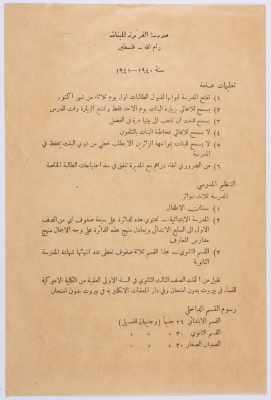 مدرسة الفرندز للبنات
رام الله – فلسطين
سنة ١٩٤٠–١٩٤١
تعليمات عامة
١) تفتح المدرسة ابوابها لقبول الطالبات اول يوم ثلاثاء من شهر اكتوبر
٢) يسمح للاهالي بزيارة البنات يوم الاحد فقط وتمنع الزيارة وقت الدرس
٣) يسمح للبنت ان تذهب الى بيتها مرة في الفصل
٤) لا يسمح للاهالي بمخاطبة البنات بالتلفون
٥) لا يسمح للبنات بمواجهة الزائرين الا بطلب خطي من ذوي البنت يحفظ في
المدرسة
٦) من الضروري ابقاء دراهم مع المديرة تنفق في سد احتياجات الطالبة الخاصة
التنظيم المدرسي
المدرسة ثلاث دوائر
١) بستان الاطفال
٢) المدرسة الابتدائية – تحتوي هذه الدائرة على سبعة صفوف اي من الصف
الاول الى السابع الابتدائي ويعادل منهج هذه الدائرة على وجه الاجمال منهج
مدارس المعارف
٣) القسم الثانوي – هذا القسم ثلاثة صفوف تعطى عند انتهائها شهادة المدرسة
الثانوية
تقبل من اكملت الصف الثالث الثانوي في السنة الاولى العلمية من الكلية الاميركية
للنساء في بيروت بدون امتحان وفي دار المعلمات الانكليزية في بيروت بدون امتحان
رسوم القسم الداخلي
القسم الابتدائي ٢٦ جنيهاً (وجنيهان للغسيل)
القسم الثانوي ٣٠ » » »
الصبيان الصغار ٣٠ » » »